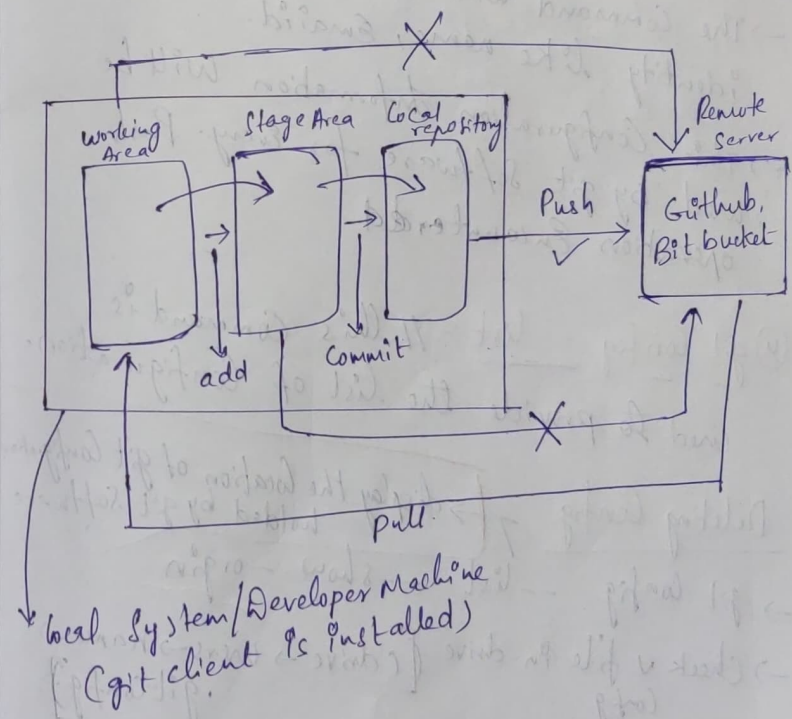 Working
Area
Stage Area
Local
repository
Remote
Server
Github,
Bit bucket
Push
add
Commit
Pull.
local System/Developer Machine
(git client is installed)